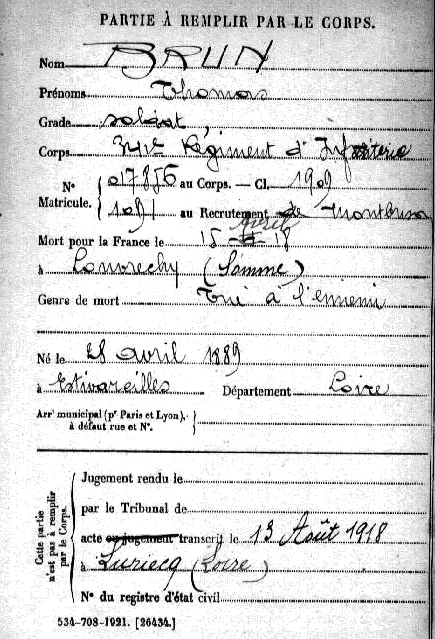 PARTIE À REMPLIR PAR LE CORPS.
Nom BRUN
Prénoms Thomas
Grade soldat
Corps 341e Régiment d'Infanterie
N° 017856 au Corps. — Cl. 1909
Matricule. 1091 au Recrutement de Montbrison
Mort pour la France le 15 Avril 18
à (Somme)
Genre de mort Tué à l'ennemi
Né le 28 avril 1889
à Estivareilles Département Loire
Arrt municipal (pr Paris et Lyon),
à défaut rue et N°.
Cette partie
n'est pas à remplir
par le Corps.
Jugement rendu le
par le Tribunal de
acte ou jugement transcrit le 13 Août 1918
à Luriecq (Loire)
N° du registre d'état civil
534-708-1921. [26434.]